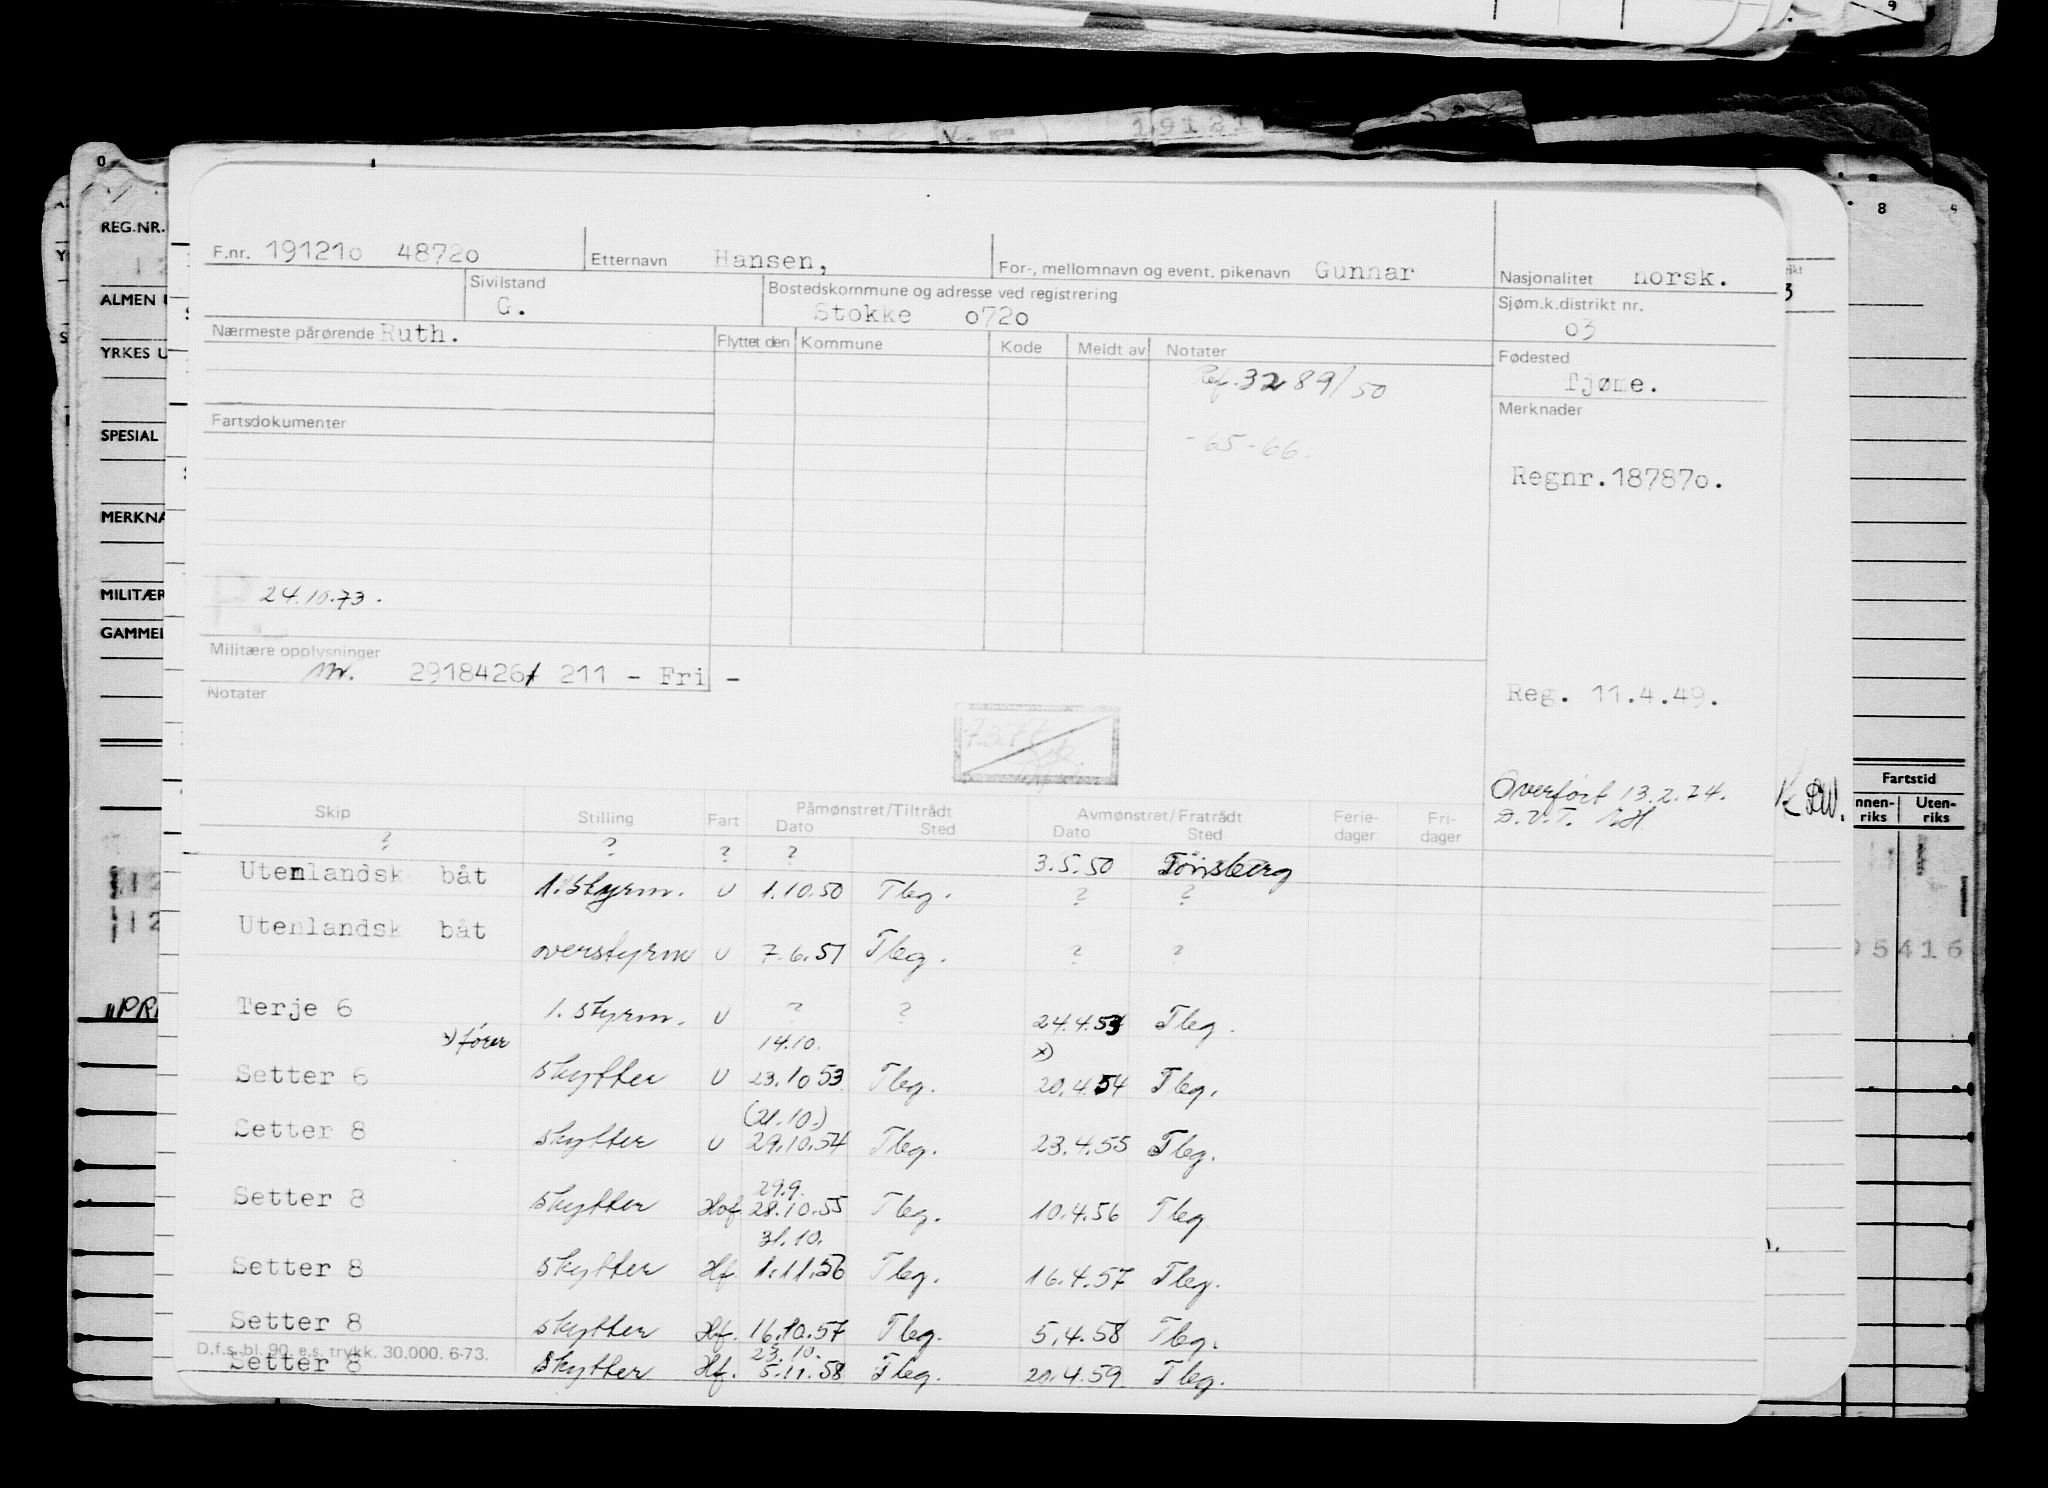 9
19121
0
8
REG.NR.
F.nr. 191210 48720 Etternavn Hansen, For-, mellomnavn og event. pikenavn Gunnar Nasjonalitet norsk.
ALMEN
Sivilstand G. Bostedskommune og adresse ved registrering Stokke 0720 Sjøm.k.distrikt nr. 03
YRKES U
Nærmeste pårørende Ruth. Flyttet den Kommune Kode Meldt av Notater Fødested Tjøme.
Ref. 3289/50
Fartsdokumenter Merknader
SPESIAL
-65-66.
Regnr.187870.
MERKNA
MILITÆR
P 24.10.73.
GAMMEL
Militære opplysninger
nr. 2918426/ 211 - Fri -
Notater
Reg. 11.4.49.
7.3.77
Overført 13.2.74.
D.V.T.
Fartstid
nnen-riks Uten-riks
Skip Stilling Fart Påmønstret/Tiltrådt Dato Sted Avmønstret/Fratrådt Dato Sted Ferie-dager Fri-dager
? ? ? ? 3.5.50 Tönsberg
Utenlandsk båt 1. styrm. U 1.10.50 Tbg. ? ?
Utenlandsk båt overstyrm U 7.6.51 Tbg. ? ?
05416
Terje 6 1. styrm. U ? ? 24.4.53 Tbg.
"PR
x) fører 14.10. x)
Setter 6 skytter U 23.10 53 Tbg. 20.4.54 Tbg.
(21.10.)
Setter 8 skytter U 29.10.54 Tbg. 23.4.55 Tbg.
29.9.
Setter 8 skytter Hof 28.10.55 Tbg. 10.4.56 Tbg
31.10.
Setter 8 skytter Hf. 1.11.56 Tbg. 16.4.57 Tbg.
Setter 8 skytter Hf. 16.10.57 Tbg. 5.4.58 Tbg.
D.f.s. bl. 90. e.s. trykk. 30.000. 6-73. 23.10.
Setter 8 skytter Hf. 5.11.58 Tbg. 20.4.59 Tbg.